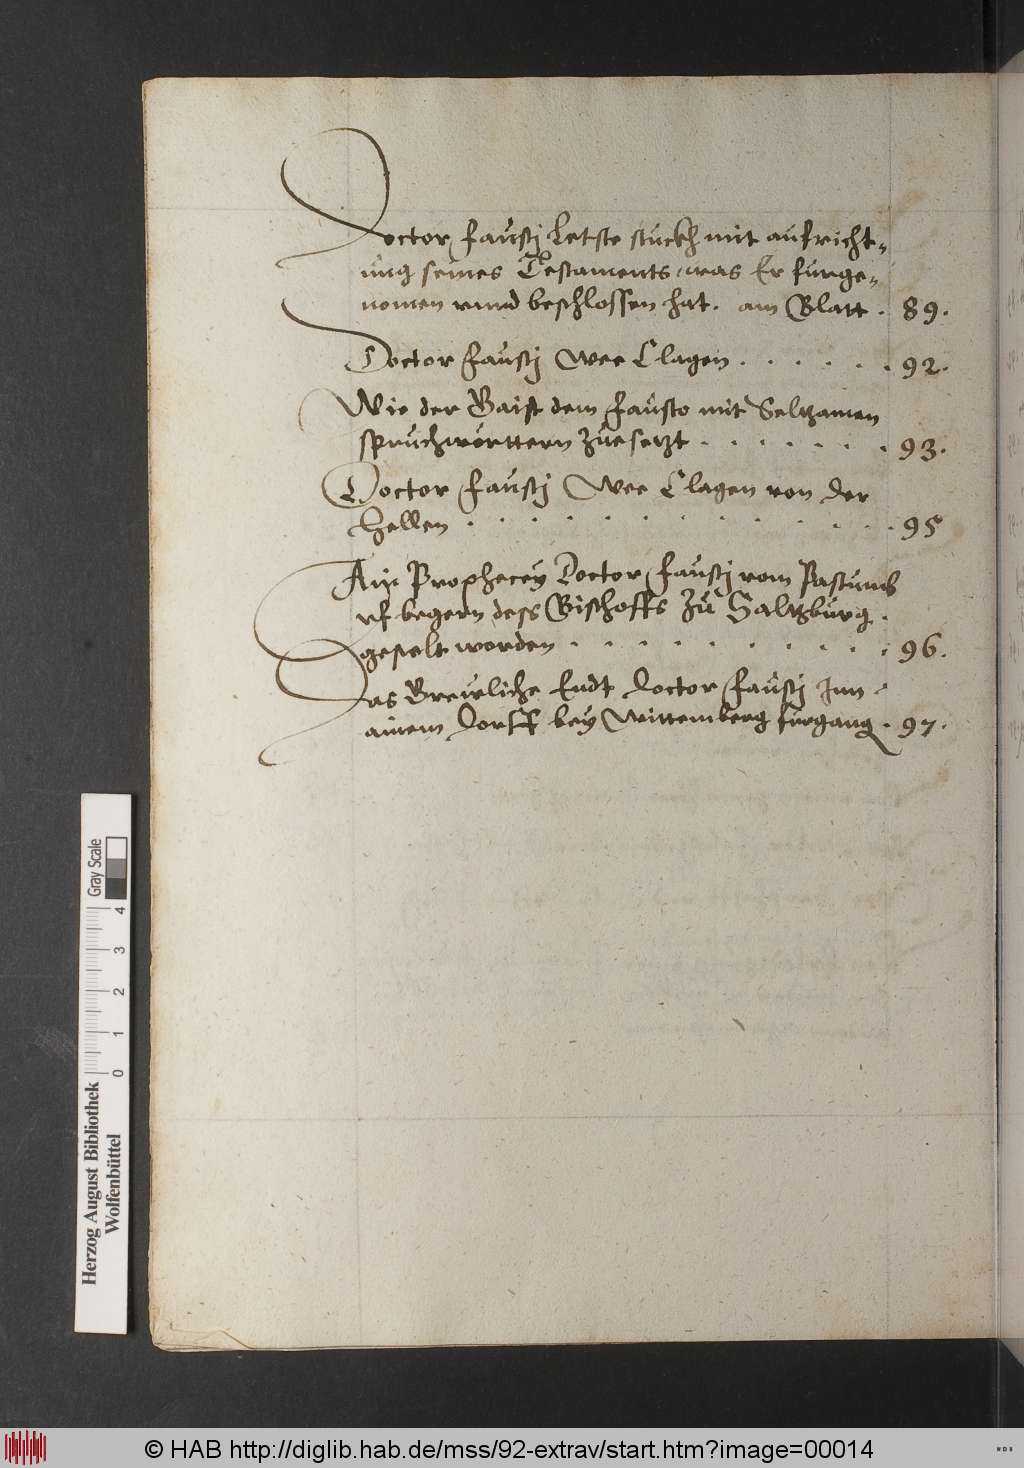 Doctor Faustj Letste stuckh mit aufricht-
ung seines Testaments, was Er furge-
nomen vnnd beschlossen hat. am Blatt . 89.
Doctor Faustj Wee Clagen . . . . . . 92.
Wie der Gaist dem Fausto mit Seltzamen
spruchwörttern zuesetzt . . . . . . . 93.
Doctor Faustj Wee Clagen von der
Hellen . . . . . . . . . . . . . 95
Ain Prophecey Doctor Faustj vom Pastumb
vf begern dess Bischoffs zu Saltzburg .
gestelt worden . . . . . . . . . . 96.
Das Greuliche Endt doctor Faustj Inn
ainem dorff bey Wittemberg furgang . 97.
Gray Scale
0 1 2 3 4
Herzog August Bibliothek
Wolfenbüttel
© HAB http://diglib.hab.de/mss/92-extrav/start.htm?image=00014